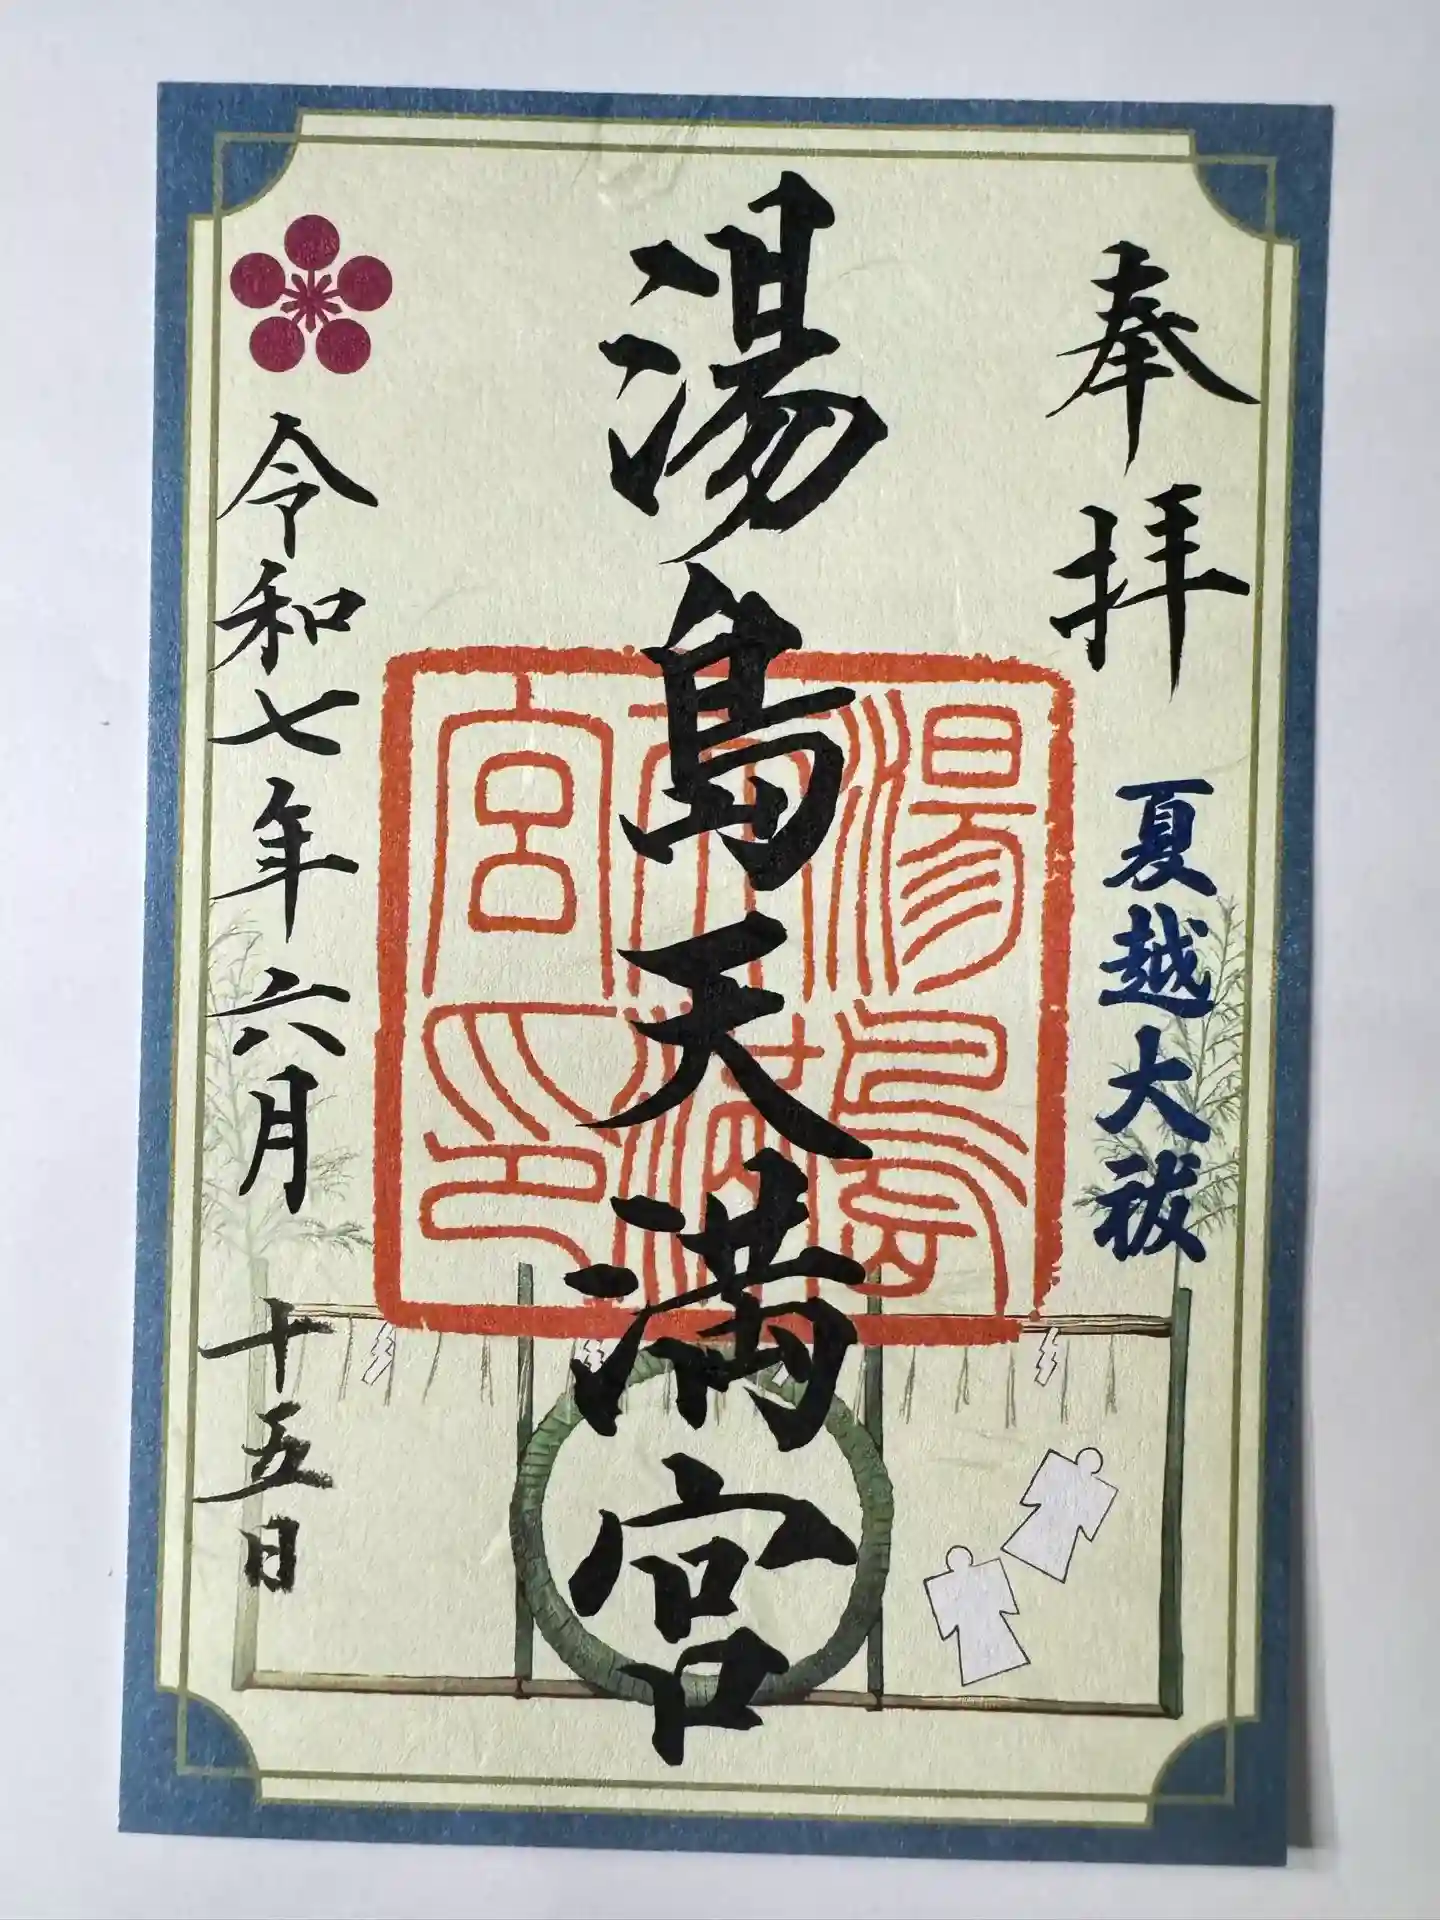 奉拝
夏越大祓
湯島天満宮
湯島天満宮印
令和七年六月十五日